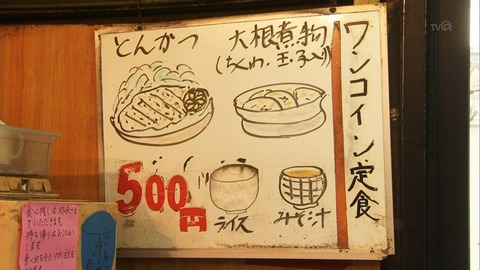 ワンコイン定食
とんかつ
大根煮物
(ちくわ・玉子入り)
500円
ライス
みそ汁
TVQ
食べ残しは